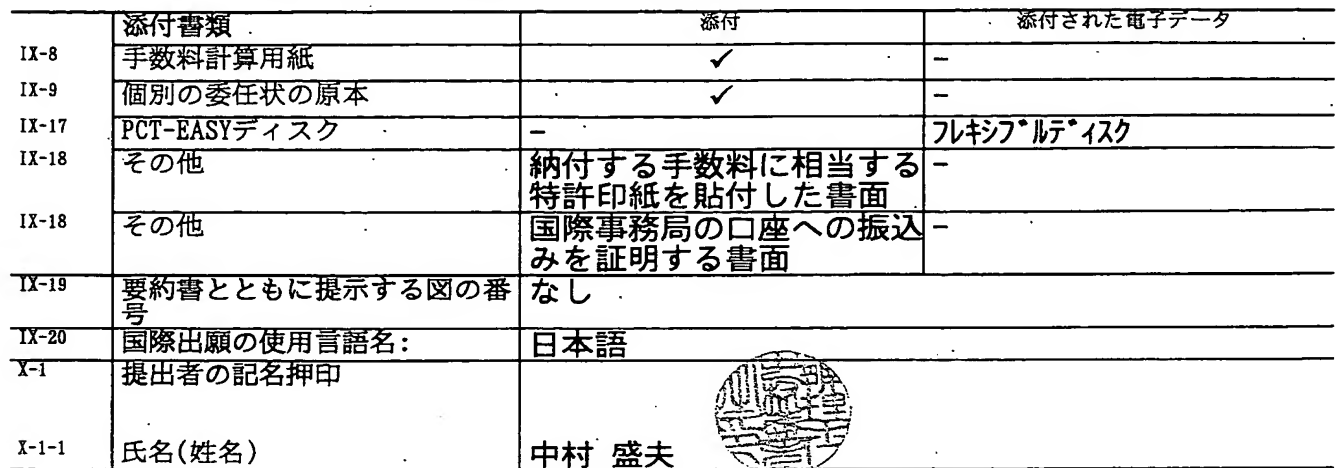 添付書類 添付 添付された電子データ
IX-8 手数料計算用紙 ✓ -
IX-9 個別の委任状の原本 ✓ -
IX-17 PCT-EASYディスク - フレキシブルディスク
IX-18 その他 納付する手数料に相当する -
特許印紙を貼付した書面
IX-18 その他 国際事務局の口座への振込 -
みを証明する書面
IX-19 要約書とともに提示する図の番 なし
号
IX-20 国際出願の使用言語名: 日本語
X-1 提出者の記名押印
X-1-1 氏名(姓名) 中村 盛夫